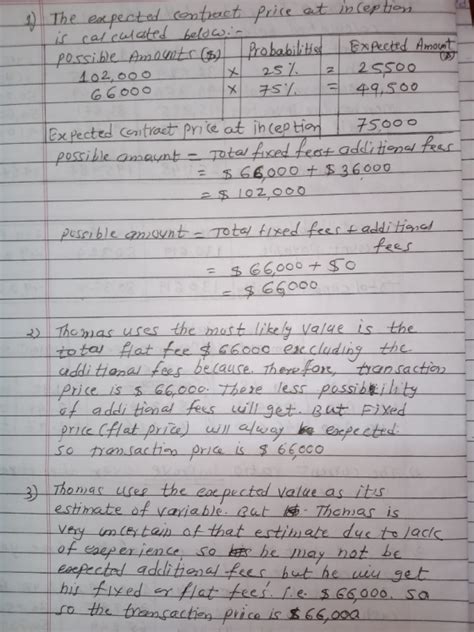 1) The expected contract price at inception
is calculated below:-
Possible Amounts ($) Probabilities Expected Amount ($)
102,000 x 25% = 25,500
66000 x 75% = 49,500
Expected contract price at inception 75,000
possible amount = Total fixed fees + additional fees
= $ 66,000 + $ 36000
= $ 102,000
possible amount = Total fixed fees + additional
fees
= $ 66,000 + $0
= $ 66000
2) Thomas uses the most likely value is the
total flat fee $ 66000 excluding the
additional fees because. Therefore, transaction
price is $ 66,000. There less possibility
of additional fees will get. But Fixed
price (flat price) will alway be expected.
so transaction price is $ 66,000
3) Thomas uses the expected value as it is
estimate of variable. But Thomas is
very uncertain of that estimate due to lack
of experience, so he may not be
expected additional fees but he will get
his fixed or flat fees. i.e. $ 66,000. so
so the transaction price is $ 66,000